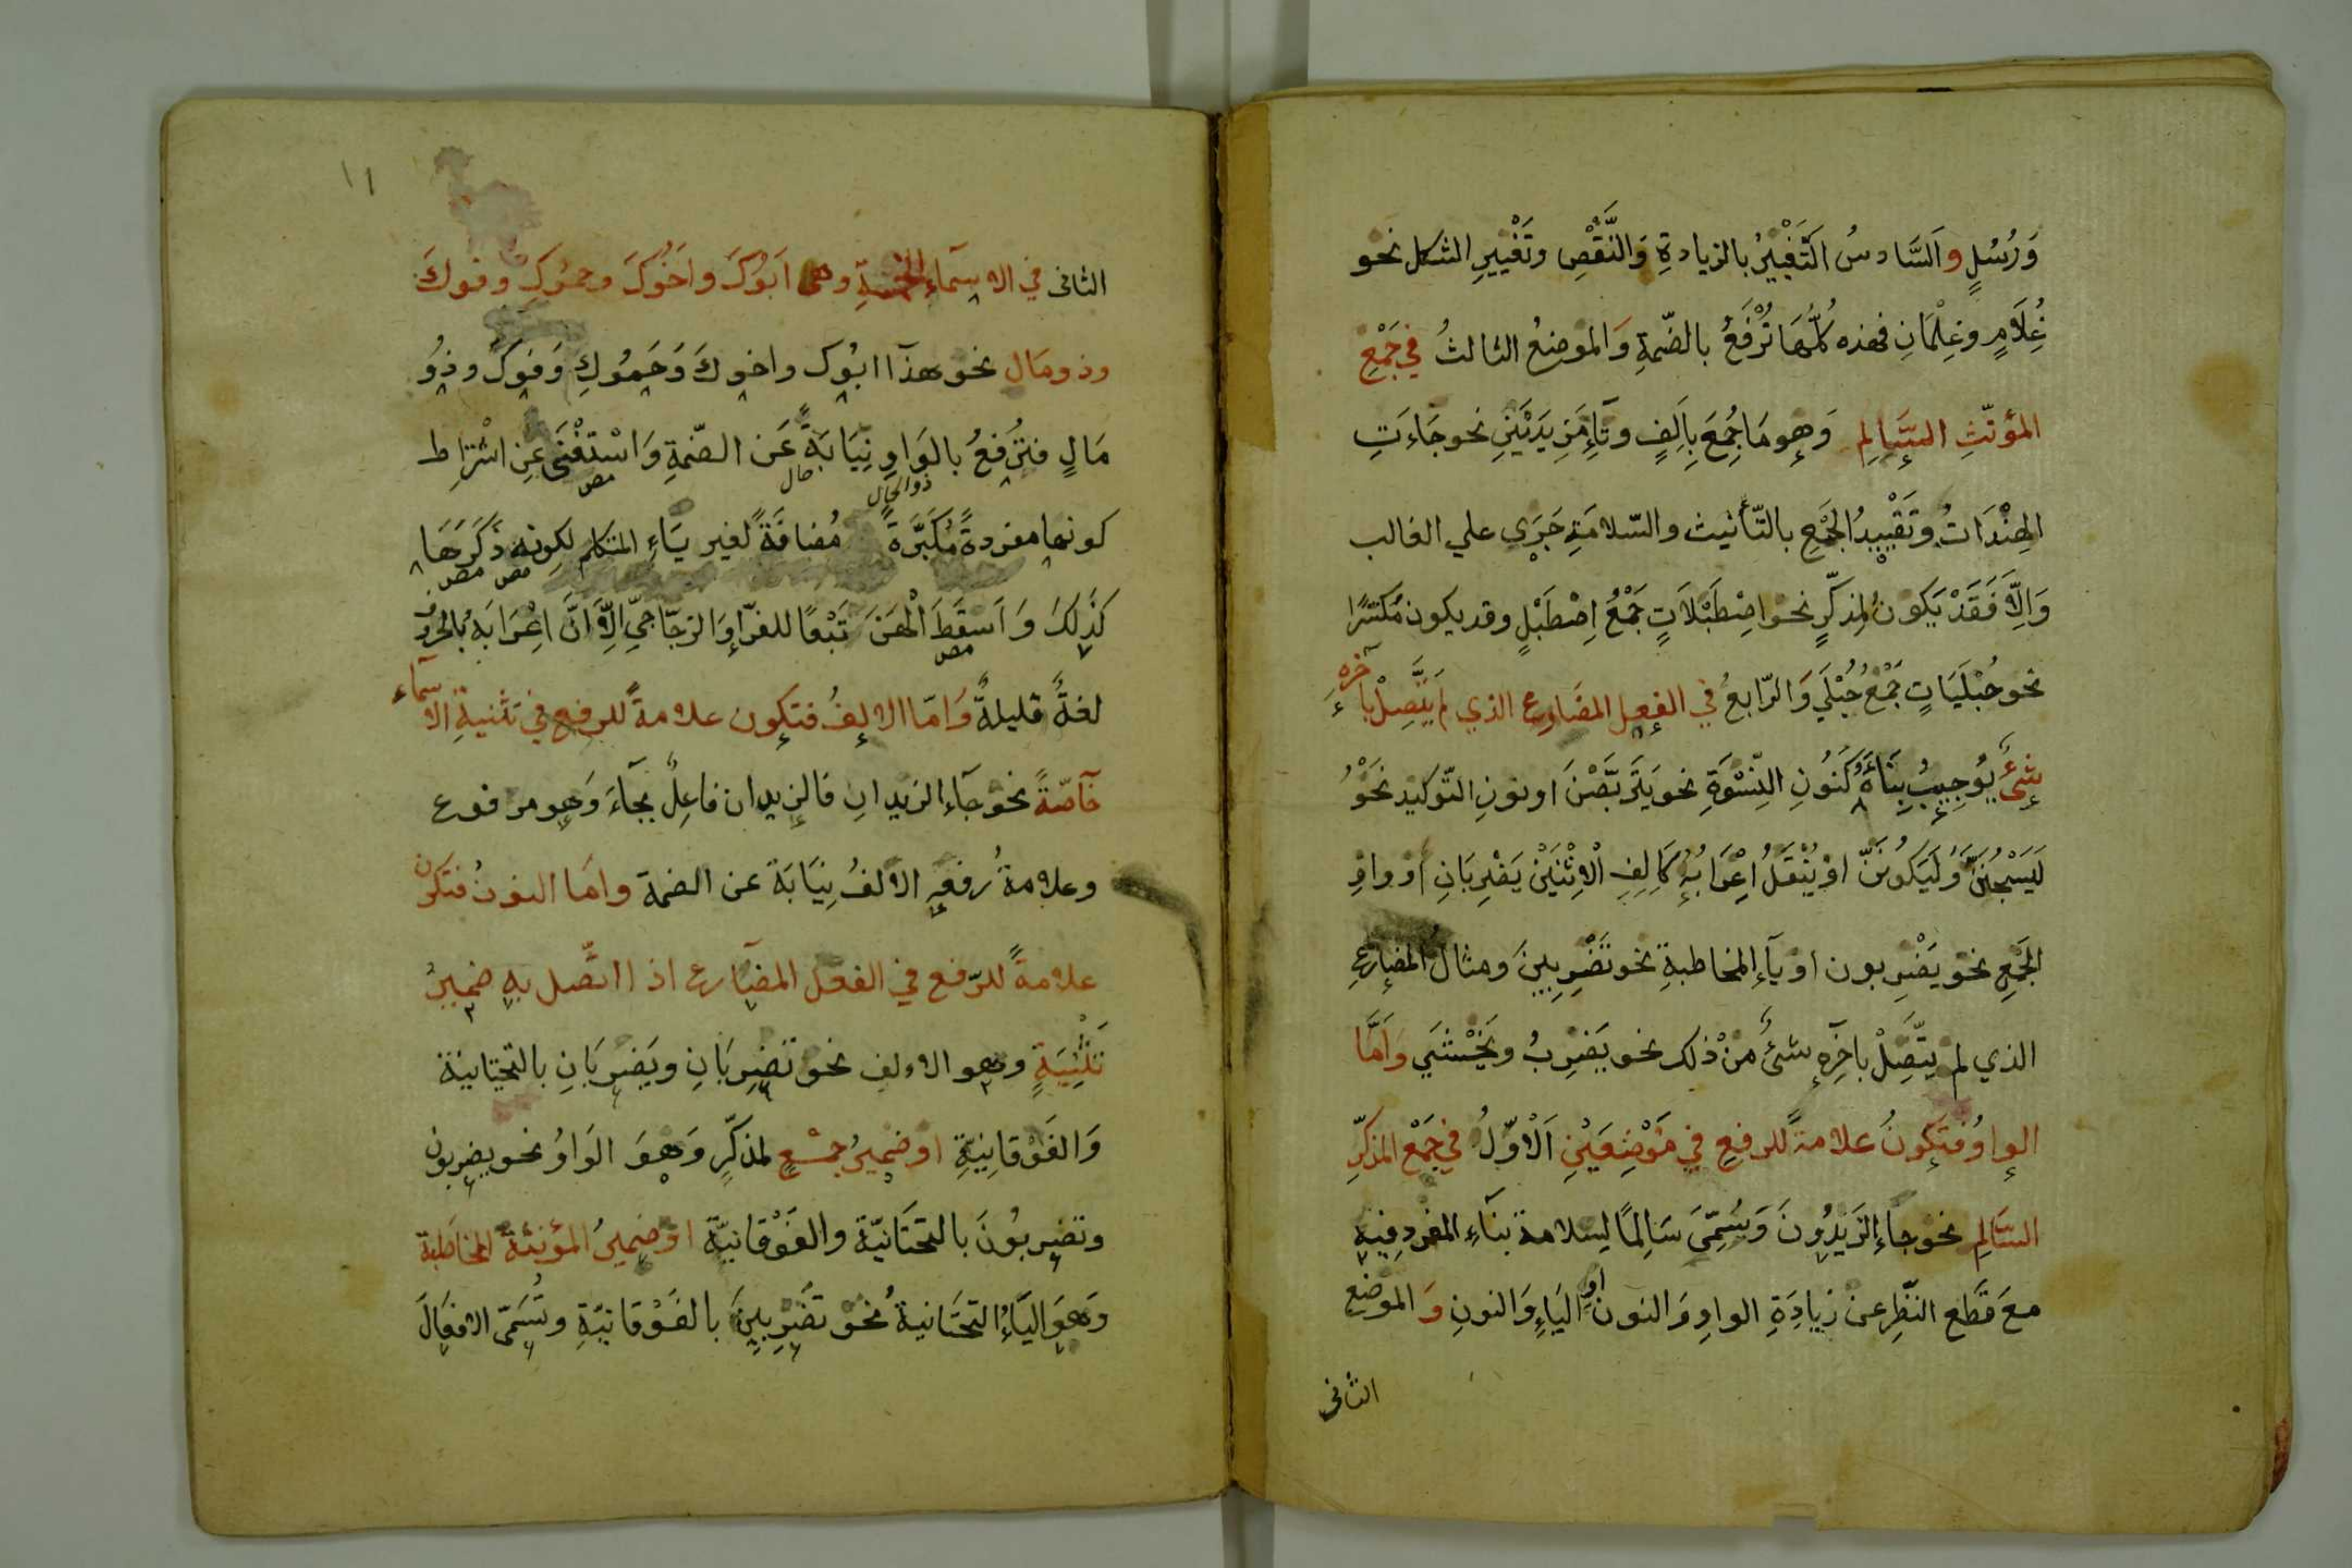 وَرُسُلٍ وَالسَّادسُ التَّغْيِيْرُ بالزيادةِ وَالنَّقْصِ وتَغْيِيْرِ الشكل نحو
غُلَامٍ وغِلْمَانِ فهذه كُلُّهَا تُرْفَعُ بالضّمةِ وَالموضعُ الثالثُ في جَمْعِ
المؤنّثِ السَّالِمِ وَهو مَا جُمِعَ بِاَلِفٍ وتَآءٍ مَزِيدَتَيْنِ نحو جَاءَتِ
الهِنْدَاتُ وتَقْيِيدُ الجَمْعِ بالتّأنيث والسّلامَةِ جَرَي علي الغالب
وَاِلَّا فَقَدْ يَكونُ لمذكّرٍ نحو اصْطَبْلَاتٍ جَمْعُ اِصْطَبْلٍ وقد يكون مُكَسّرًا
نحو حُبْلَيَاتٍ جَمْعُ حُبْلَي وَالرّابعُ في الفِعلِ المضَارع الذي لم يَتَّصِلْ بآخرهِ
شئٌ يُوجِبُ بِنَاءَهُ كَنُونِ النِّسْوَةِ نحو يَتَرَبَّصْنَ او نونِ التّوكيد نَحْوُ
لَيُسْجَنَنَّ وَلَيَكُونَنَّ اوْ يُنْقَلُ اِعْرَابُهُ كَاَلِفِ الْاِثْنَيْنِ يَضْرِبَانِ اوْ واوِ
الجَمْعِ نحو يَضْرِبون او يآءِ المخاطبةِ نحو تَضْرِبِينَ ومثالُ المضارعِ
الذي لم يتّصِلْ بآخِرِهِ شئٌ منْ ذلك نحو يَضرِبُ ويَخْشَي وَاَمَّا
الواوُ فتَكونُ علامةً للرفعِ في مَوْضِعَيْنِ اَلْاَوّلُ في جَمْع المذكّرِ
السَّالِمِ نحو جآءَ الزَيدُونَ وَسُمِّيَ سَالِمًا لِسلامة بنَآءِ المفردِ فيهِ
معَ قَطَعِ النّظرِ عن زيادَةِ الواوِ وَالنون او اليَاءِ وَالنونِ وَ الموضع
الثانى
١١
الثانى في الاسمَآءِ الخمسةِ وهى اَبُوْكَ واخُوْكَ وحَمُوكِ وفوكَ
وذومَال نحو هذآ ابُوك واخوكَ وَحَمُوكِ وَفوكَ وذوُ
مَالٍ فتُرْفعُ بالوَاوِ نِيَابَةً عَن الضّمةِ وَاسْتَغْنَى عن اشْتِرَاطِ
مص حال ذوالحال
كونها مفردةً مُكَبَّرَةً مُضافَةً لغير يَاءِ المتكلم لكونه ذَكَرَهَا
مص مص
كَذٰلِكَ وَاَسقَطَ الْهَنَ تَبْعًا للفرّاءِ وَالزجّاجيّ اِلَّا اَنَّ اِعْرَابَهُ بالحروف
مص
لغةٌ قليلةٌ وَامّا الالِفُ فتكون علامةً للرفع في تثنيةِ الاسمآء
خآصّةً نحو جآءَ الزيدانِ فَالزيدان فاعِلٌ بجآءَ وَهو مرفوع
وعلامةُ رفعهِ الالفُ نِيَابَة عن الضمة وامَا النونُ فتكون
علامةً للرّفع في الفعل المضَارع اذا اتّصل به ضميرُ
تَثْنِيَةٍ وهو الالف نحو تَضرِبَانِ ويَضرِبَانِ بالتحتانية
وَالفَوْقانِيةِ اوضميرُ جمْعٍ لمذكّرٍ وَهوَ الوَاوُ نحو يضربون
وتضربُونَ بالتحتَانيّة والفَوْقانيّة اوضميرُ المؤنثة المخاطَبة
وَهوَ اليَاءُ التحتَانيةُ نحْوُ تضْرِبِينَ بالفَوْقانيّةِ وتُسَمّى الافعَالَ